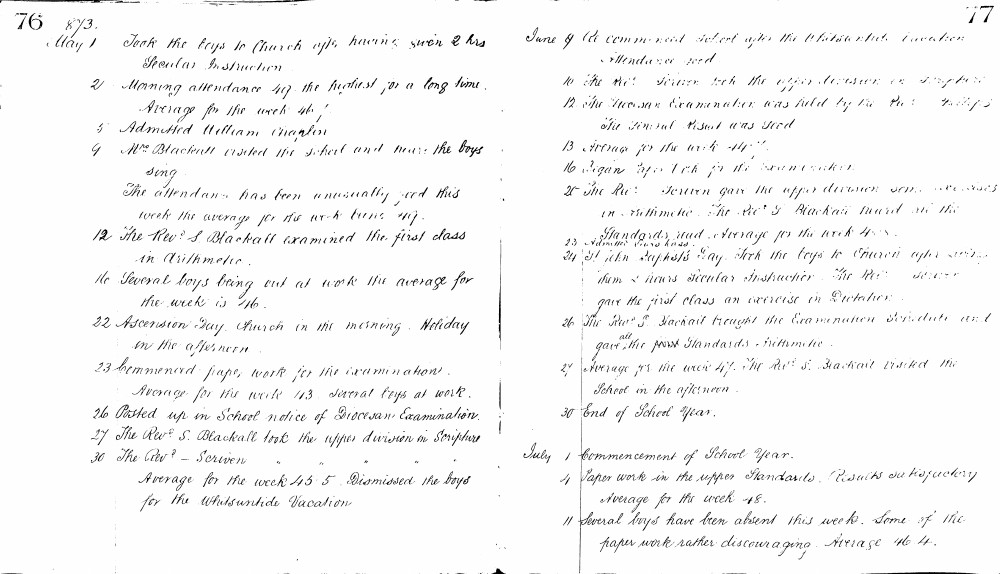 76
873.
May 1 Took the boys to Church after having given 2 hrs
Secular Instruction
2 Morning attendance 49 the highest for a long time.
Average for the week 46
5 Admitted William Chaplin
9 Mrs Blackall visited the school and the boys
sing
The attendance has been unusually good this
week the average for the week being 47.
12 The Revd S. Blackall examined the first class
in Arithmetic.
16 Several boys being out at work the average for
the week is 46.
22 Ascension Day. Church in the morning. Holiday
in the afternoon.
23 Commenced paper work for the examination.
Average for the week 43 several boys at work.
26 Posted up in School notice of Diocesan Examination.
27 The Revd S. Blackall took the upper division in Scripture
30 The Revd – Scriven " " " "
Average for the week 45.5. Dismissed the boys
for the Whitsuntide Vacation
77
June 9 Re commenced School after the Whitsuntide Vacation
Attendance good
10 The Revd Scriven took the upper division in Scripture
12 The Diocesan Examination was held by the Revd
The General Result was Good
13 Average for the week
16 Began for the examination
20 The Revd Scriven gave the upper division some exercises
in Arithmetic. The Revd S. Blackall heard all the
Standards read. Average for the week
23 Admitted
24 St John Baptist's Day. Took the boys to Church after giving
them 2 hours Secular Instruction. The Revd Scriven
gave the first class an exercise in Dictation.
26 The Revd S. Blackall brought the Examination Schedule and
gave all the Standards Arithmetic.
27 Average for the week 47. The Revd S. Blackall visited the
School in the afternoon.
30 End of School Year.
July 1 Commencement of School Year.
4 Paper work in the upper Standards. Results satisfactory
Average for the week 48.
11 Several boys have been absent this week. Some of the
paper work rather discouraging. Average 46.4.